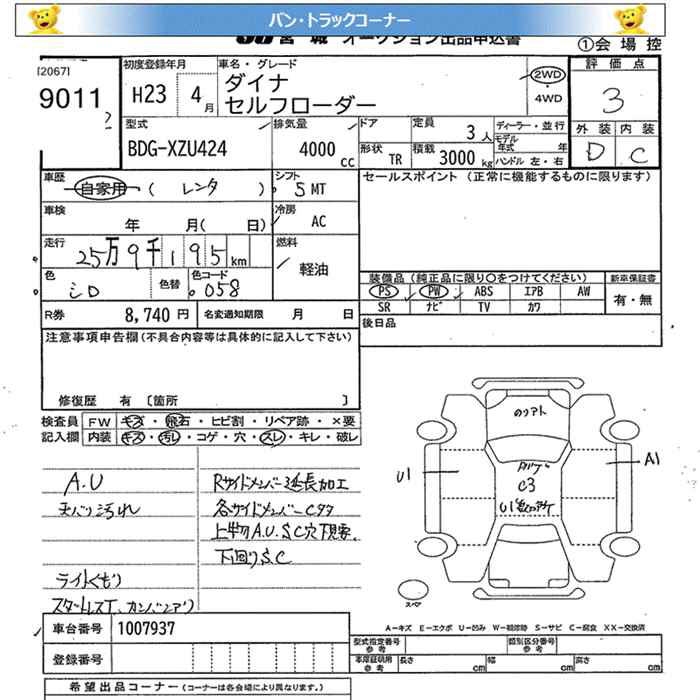 バン・トラックコーナー
JU 宮城 オークション出品申込書
①会場控
[2067]
9011
初度登録年月
H23 4月
車名・グレード
ダイナ
セルフローダー
2WD
・
4WD
評価点
3
外装 内装
D C
型式
BDG-XZU424
排気量
4000 cc
ドア
形状 TR
定員
3人
積載 3000 kg
ディーラー・並行
モデル年式 年
ハンドル 左・右
車歴
自家用 ( レンタ )
シフト
5 MT
セールスポイント (正常に機能するものに限ります)
車検
年 月( 日)
冷房
AC
走行
25万9千195km
燃料
軽油
色
シロ
色替
色コード
058
装備品 (純正品に限り○をつけてください)
新車保証書
PS PW ABS エアB AW
SR ナビ TV カワ
有・無
R券 8,740円
名変通知期限 月 日
後日品
注意事項申告欄 (不具合内容等は具体的に記入して下さい)
修復歴 有 〔箇所 〕
検査員記入欄
FW キズ・飛石・ヒビ割・リペア跡・×要
内装 キズ・汚レ・コゲ・穴・スレ・キレ・破レ
A.U
Rサイドメンバー延長加工
各サイドメンバーCタタ
下回りS.C
ライトくもり
U1
A1
C3
スペア
A-キズ E-エクボ U-凹み W-補修跡 S-サビ C-腐食 XX-交換済
車台番号 1007937
登録番号
型式指定番号 参考
類別区分番号 参考
車庫証明用 参考
長さ cm
幅 cm
高さ cm
希望出品コーナー (コーナーは各会場により異なります)